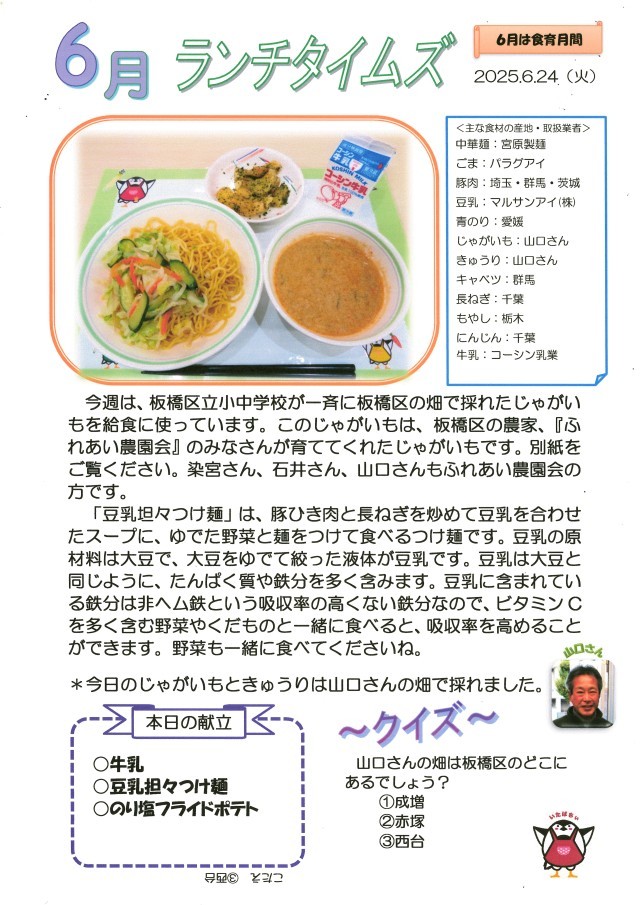 6月 ランチタイムズ
6月は食育月間
2025.6.24（火）
＜主な食材の産地・取扱業者＞
中華麺：宮原製麺
ごま：パラグアイ
豚肉：埼玉・群馬・茨城
豆乳：マルサンアイ(株)
青のり：愛媛
じゃがいも：山口さん
きゅうり：山口さん
キャベツ：群馬
長ねぎ：千葉
もやし：栃木
にんじん：千葉
牛乳：コーシン乳業
牛乳
コーシン牛乳
今週は、板橋区立小中学校が一斉に板橋区の畑で採れたじゃがい
もを給食に使っています。このじゃがいもは、板橋区の農家、『ふ
れあい農園会』のみなさんが育ててくれたじゃがいもです。別紙を
ご覧ください。染宮さん、石井さん、山口さんもふれあい農園会の
方です。
「豆乳坦々つけ麺」は、豚ひき肉と長ねぎを炒めて豆乳を合わせ
たスープに、ゆでた野菜と麺をつけて食べるつけ麺です。豆乳の原
材料は大豆で、大豆をゆでて絞った液体が豆乳です。豆乳は大豆と
同じように、たんぱく質や鉄分を多く含みます。豆乳に含まれてい
る鉄分は非ヘム鉄という吸収率の高くない鉄分なので、ビタミンC
を多く含む野菜やくだものと一緒に食べると、吸収率を高めること
ができます。野菜も一緒に食べてくださいね。
＊今日のじゃがいもときゅうりは山口さんの畑で採れました。
山口さん
本日の献立
○牛乳
○豆乳坦々つけ麺
○のり塩フライドポテト
～クイズ～
山口さんの畑は板橋区のどこに
あるでしょう？
①成増
②赤塚
③西台
いたばちぃ
こたえ　③西台